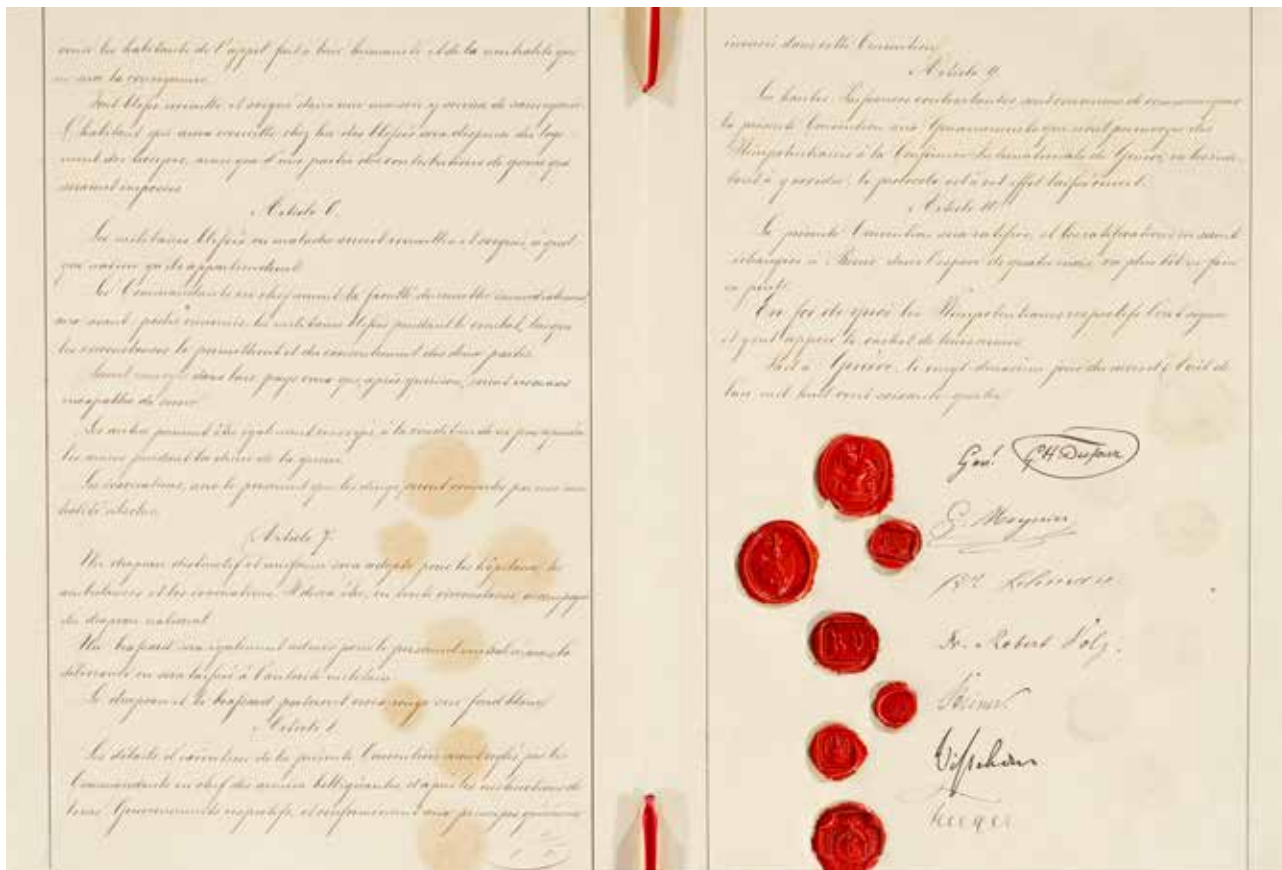 venir les habitants de l'appel fait à leur humanité et de la neutralité qui
en sera la conséquence.
Tout blessé recueilli et soigné dans une maison y servira de sauvegarde.
L'habitant qui aura recueilli chez lui des blessés sera dispensé du loge-
ment des troupes, ainsi que d'une partie des contributions de guerre qui
seraient imposées.
Article 6.
Les militaires blessés ou malades seront recueillis et soignés, à quel-
que nation qu'ils appartiendront.
Les Commandants en chef auront la faculté de remettre immédiatement
aux avant-postes ennemis, les militaires blessés pendant le combat, lorsque
les circonstances le permettront et du consentement des deux partis.
Seront renvoyés dans leur pays ceux qui, après guérison, seront reconnus
incapables de servir.
Les autres pourront être également renvoyés, à la condition de ne pas reprendre
les armes pendant la durée de la guerre.
Les évacuations, avec le personnel qui les dirige, seront couvertes par une neu-
tralité absolue.
Article 7.
Un drapeau distinctif et uniforme sera adopté pour les hôpitaux, les
ambulances et les évacuations. Il devra être, en toute circonstance, accompagné
du drapeau national.
Un brassard sera également admis pour le personnel neutralisé, mais la
délivrance en sera laissée à l'autorité militaire.
Le drapeau et le brassard porteront croix rouge sur fond blanc.
Article 8.
Les détails d'exécution de la présente Convention seront réglés par les
Commandants en chef des armées belligérantes, d'après les instructions de
leurs Gouvernements respectifs, et conformément aux principes généraux
énoncés dans cette Convention.
Article 9.
Les hautes Puissances contractantes sont convenues de communiquer
la présente Convention aux Gouvernements qui n'ont pu envoyer des
Plénipotentiaires à la Conférence Internationale de Genève, en les invi-
tant à y accéder; le protocole est à cet effet laissé ouvert.
Article 10.
La présente Convention sera ratifiée, et les ratifications en seront
échangées à Berne, dans l'espace de quatre mois, ou plus tôt si faire
se peut.
En foi de quoi les Plénipotentiaires respectifs l'ont signée
et y ont apposé le cachet de leurs armes.
Fait à Genève, le vingt deuxième jour du mois d'Août de
l'an mil huit cent soixante-quatre.
Genl. GH Dufour
G. Moynier
Dr Lehmann
Dr. Robert Volz.
Steiner.
Visschers